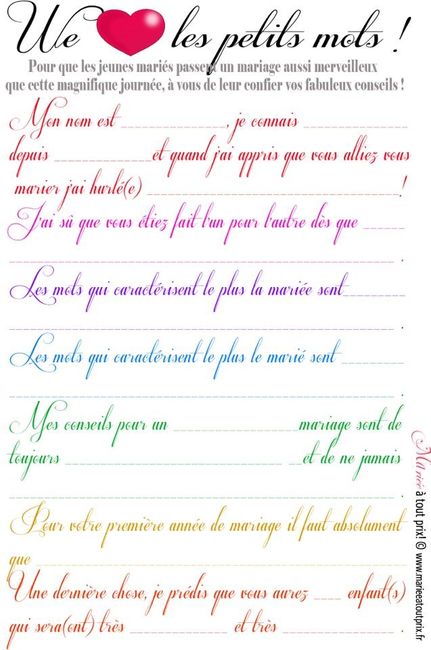 We ❤ les petits mots !
Pour que les jeunes mariés passent un mariage aussi merveilleux
que cette magnifique journée, à vous de leur confier vos fabuleux conseils !
Mon nom est ____________, je connais ____________
depuis ____________ et quand j'ai appris que vous alliez vous
marier j'ai hurlé(e) ____________________________!
J'ai sû que vous étiez fait l'un pour l'autre dès que _____
____________________________________________ .
Les mots qui caractérisent le plus la mariée sont _______
____________________________________________ .
Les mots qui caractérisent le plus le marié sont _______
____________________________________________ .
Mes conseils pour un ______________ mariage sont de
toujours ________________________ et de ne jamais
____________________________________________ .
Pour votre première année de mariage il faut absolument
que ________________________________________ .
Une dernière chose, je prédis que vous aurez ___ enfant(s)
qui sera(ont) très ____________ et très ____________ .
Mariée à tout prix! © www.marieeatoutprix.fr